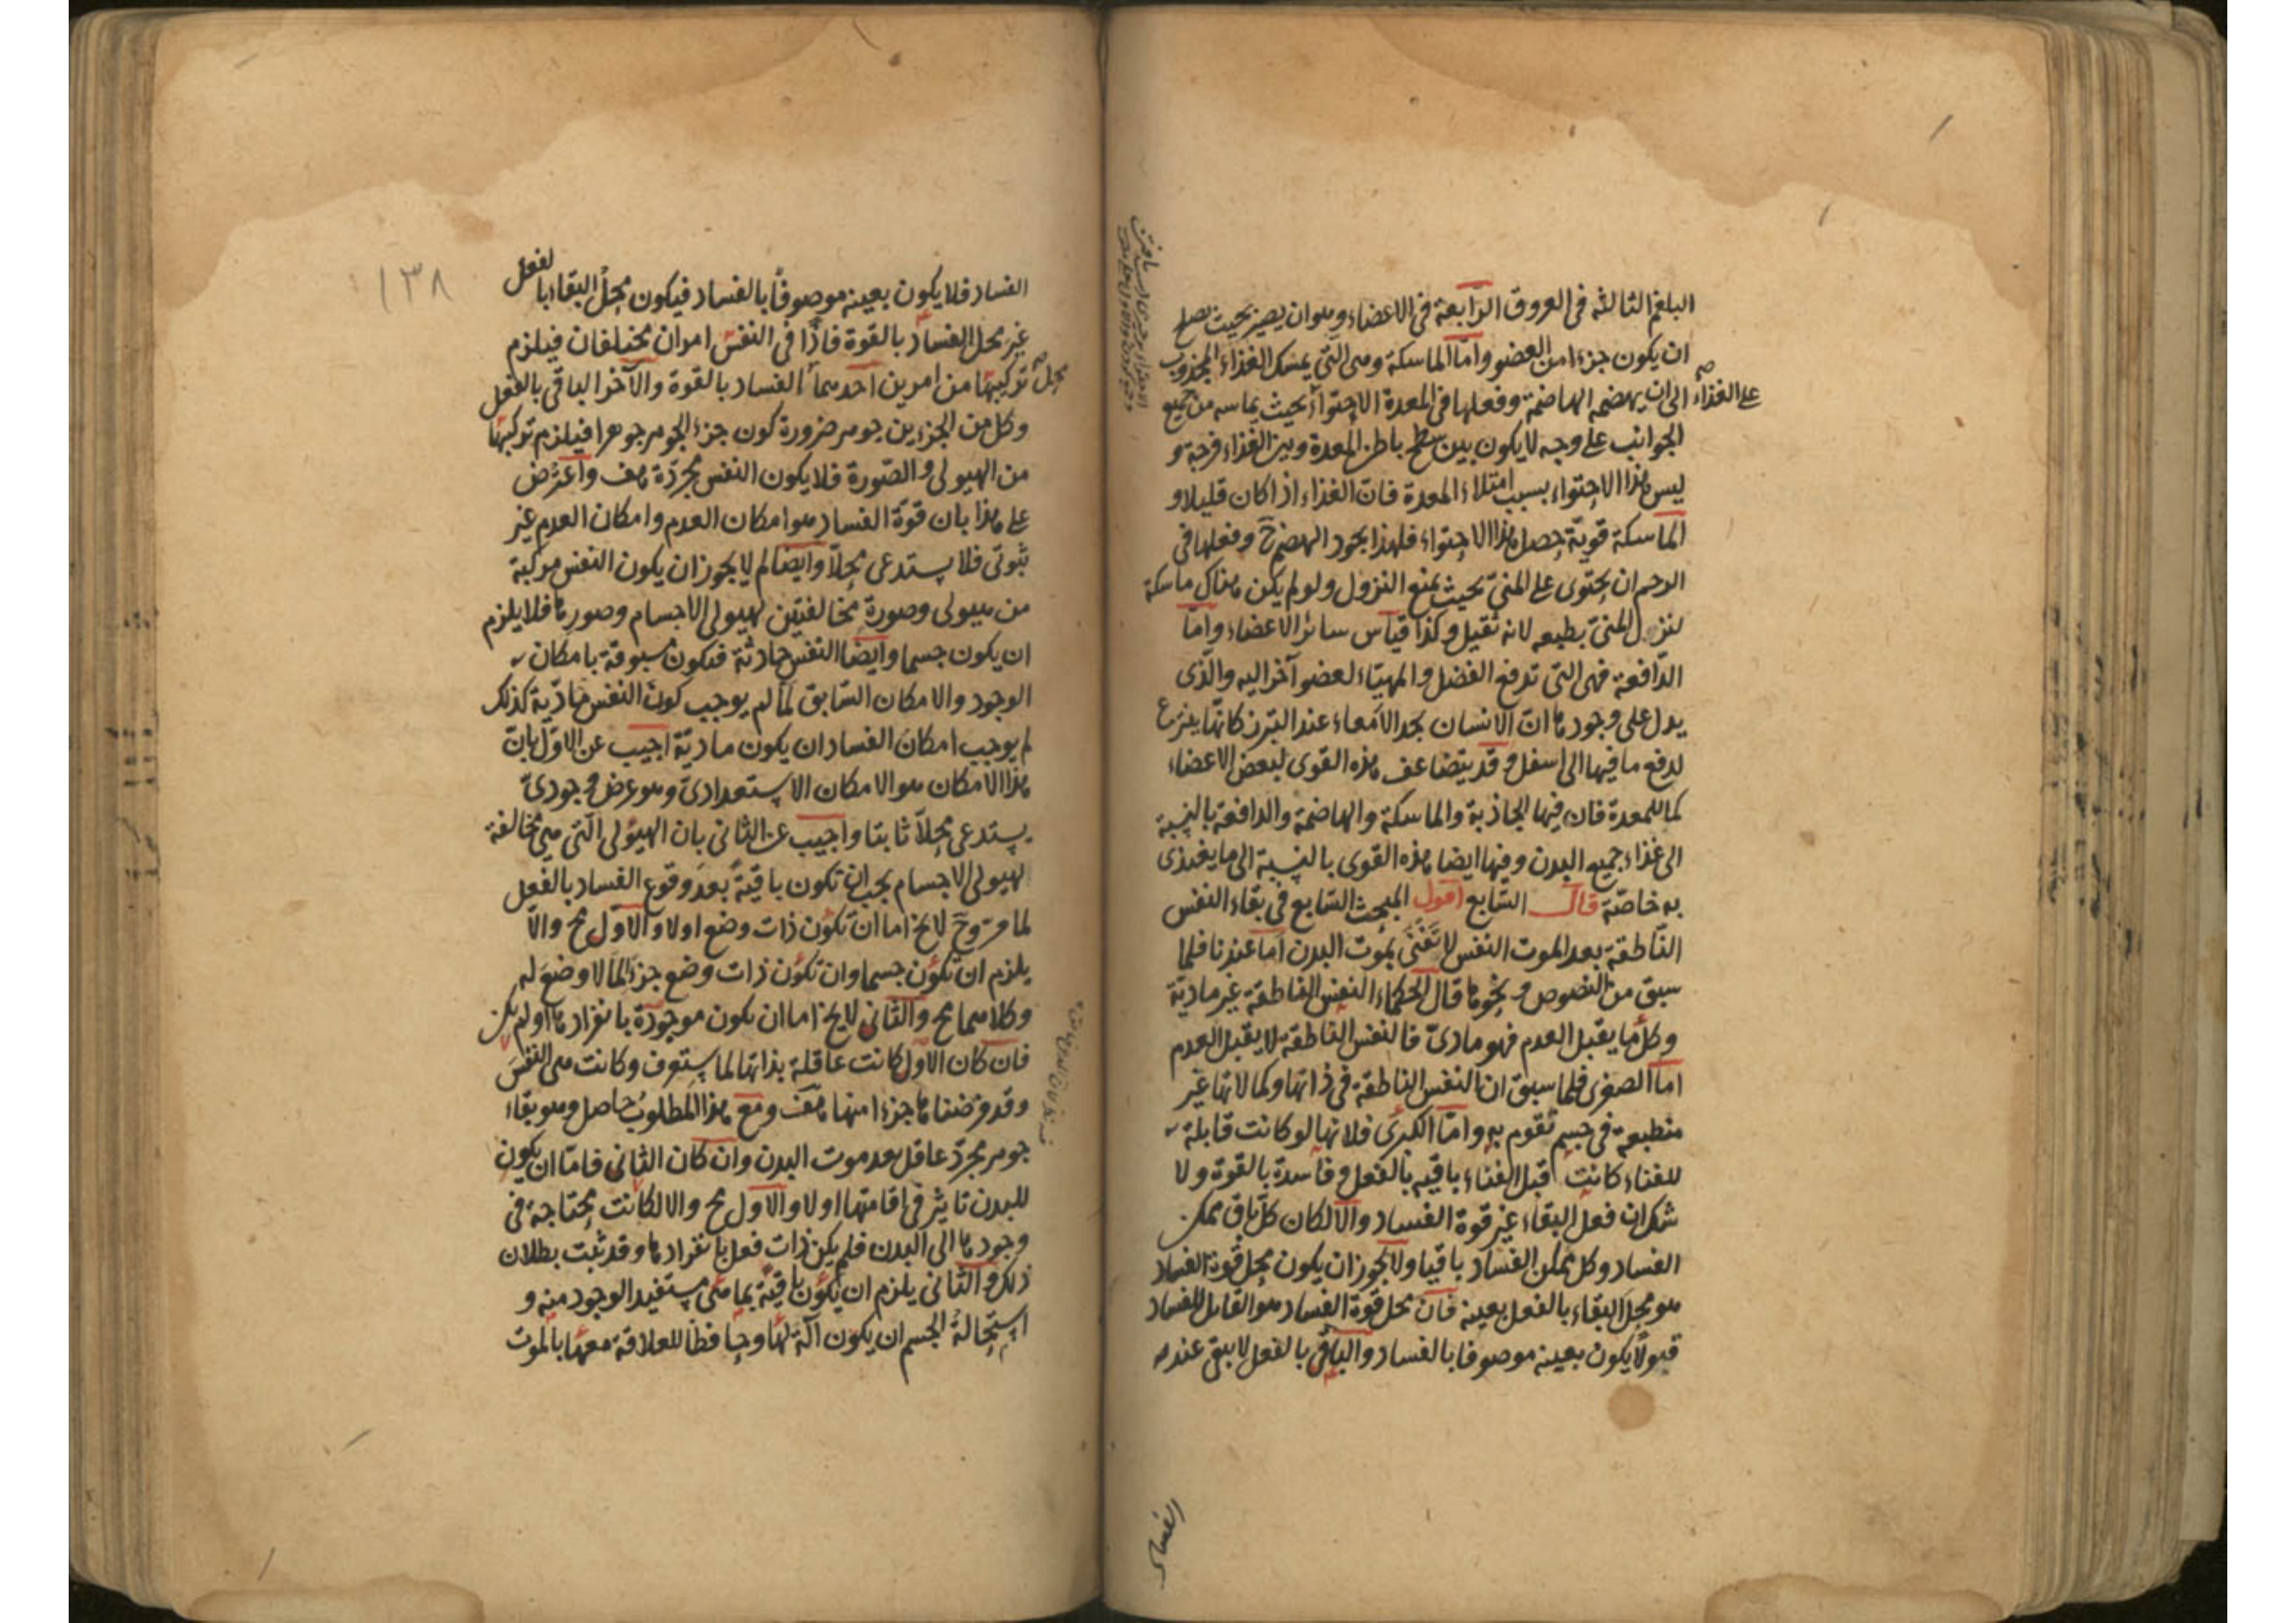 البلغم الثالثه فى العروق الرّابعة فى الاعضاء وهو ان يصير بحيث يصلح
ان يكون جزءا من العضو وامّا الماسكة وهى التى يمسك الغذاء المجذوب
الى ان يهضمه الهاضمة وفعلها فى المعدة الاحتواء بحيث يماسه من جميع
على الغذاء
الجوانب على وجه لا يكون بين سطح باطن المعدة وبين الغذاء فرجة و
ليس هذا الاحتواء بسبب امتلاء المعدة فانّ الغذاء اذا كان قليلا و
الماسكة قويّة حصل هذا الاحتواء فلهذا يجود الهضم ح وفعلها فى
الرحم ان يحتوى على المنىّ بحيث يمنع النزول ولو لم يكن هناك ماسكة
لنزل المنىّ بطبعه لانه ثقيل وكذا قياس سائر الاعضاء وامّا
الدّافعة فهى التى تدفع الفضل والمهيّاء لعضو آخر اليه والّذى
يدل على وجودها انّ الانسان يجد الامعاء عند التبرز كانّها ينزع
لدفع ما فيها الى اسفل وقد يتضاعف هذه القوى لبعض الاعضاء
كما للمعدة فان فيها الجاذبة والماسكة والهاضمة والدافعة بالنسبة
الى غذاء جميع البدن وفيها ايضا هذه القوى بالنسبة الى ما يغتذى
به خاصّة قال السّابع اقول المبحث السّابع فى بقاء النفس
النّاطقة بعد الموت النفس لا تَفْنَى بموت البدن امّا عندنا فلما
سبق من النصوص ونحوها قال الحكماء النفس الناطقة غير ماديّة
وكلّ ما يقبل العدم فهو مادىّ فالنفس الناطقة لا يقبل العدم
امّا الصغرى فلما سبق ان النفس الناطقة فى ذاتها وكمالاتها غير
منطبعة فى جسم تقوم به وامّا الكبرى فلانها لو كانت قابلة
للفناء كانت قبل الفناء باقيه بالفعل وفاسدة بالقوة ولا
شك ان فعل البقاء غير قوة الفساد والّا لكان كلّ باق ممكن
الفساد وكل ممكن الفساد باقيا ولا يجوز ان يكون محل قوة الفساد
هو محل البقاء بالفعل بعينه فان محل قوة الفساد هو القابل للفساد
قبولًا يكون بعينه موصوفا بالفساد والباقى بالفعل لا يبقى عند
الفساد
١٣٨
الفساد فلا يكون بعينه موصوفاً بالفساد فيكون محلّ البقاء بالفعل
غير محل الفساد بالقوة فاذًا فى النفس امران مختلفان فيلزم
تركيبها من امرين احدهما الفساد بالقوة والآخر الباقى بالفعل
محل
وكل من الجزءين جوهر ضرورة كون جزء الجوهر جوهرا فيلزم تركبها
من الهيولى والصّورة فلا يكون النفس مجرّدة هف واعترض
على هذا بان قوة الفساد هو امكان العدم وامكان العدم غير
ثبوتى فلا يستدعى محلّا وايضا لم لا يجوز ان يكون النفس مركبة
من هيولى وصورة مخالفتين لهيولى الاجسام وصورها فلا يلزم
ان يكون جسما وايضا النفس حادثة فيكون مسبوقة بامكان
الوجود والامكان السّابق لمّا لم يوجب كون النفس مادّية كذلك
لم يوجب امكان الفساد ان يكون ماديّة اجيب عن الاوّل بانّ
هذا الامكان هو الامكان الاستعدادىّ وهو عرض وجودىّ
يستدعى محلّا ثابتا واجيب عن الثانى بان الهيولى الّتى هى مخالفة
لهيولى الاجسام يجب ان تكون باقيةً بعد وقوع الفساد بالفعل
لما مرّ وح لا يخ امّا ان تكون ذات وضع اولا والاوّل مح والّا
يلزم ان تكون جسما وان تكون ذات وضع جزءا لما لا وضع له
وكلاهما مح والثانى لا يخ اما ان يكون موجودة بانفرادها او لم يكن
فان كان الاول كانت عاقلة بذاتها لما ستعرف وكانت هى النفس
وقد فرضنا ها جزءا منها هف ومع هذا المطلوب حاصل وهو بقاء
جوهر مجرّد عاقل بعد موت البدن وان كان الثانى فامّا ان يكون
للبدن تاثير فى اقامتها اولا والاول مح والا لكانت محتاجة فى
وجودها الى البدن فلم يكن ذات فعل بانفرادها وقد ثبت بطلان
ذلك والثانى يلزم ان يكون باقية بما هى مستفيد الوجود منه و
استحالة الجسم ان يكون آلة لها وحافظا للعلاقة معها بالموت